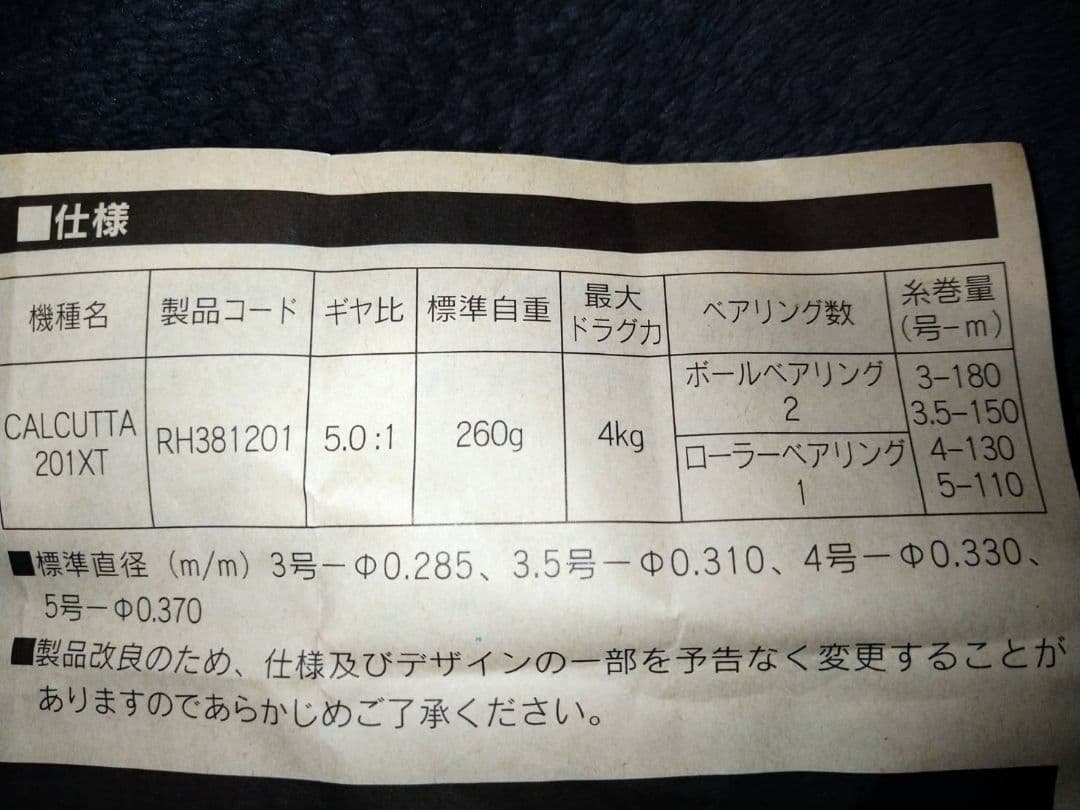 ■仕様
機種名 製品コード ギヤ比 標準自重 最大ドラグ力 ベアリング数 糸巻量(号-m)
CALCUTTA 201XT RH381201 5.0:1 260g 4kg
ボールベアリング
2
ローラーベアリング
1
3-180
3.5-150
4-130
5-110
■標準直径(m/m)3号-Φ0.285、3.5号-Φ0.310、4号-Φ0.330、
5号-Φ0.370
■製品改良のため、仕様及びデザインの一部を予告なく変更することが
ありますのであらかじめご了承ください。